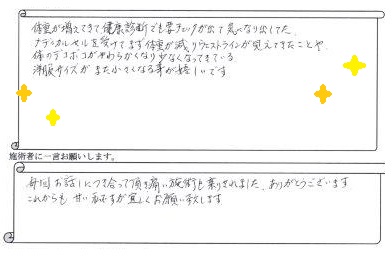 体重が増えてきて健康診断でも要チェックが出て気になり出してた。
メディカルセルを受けてまず体重が減りウエストラインが見えてきたことや、
体のデコボコがやわらかくなり少なくなってきている
洋服サイズがまた小さくなる事が嬉しいです
施術者に一言お願いします。
毎回お話しにつき合って頂き痛い施術も乗りきれました。ありがとうございます
これからも甘い私ですが宜しくお願い致します